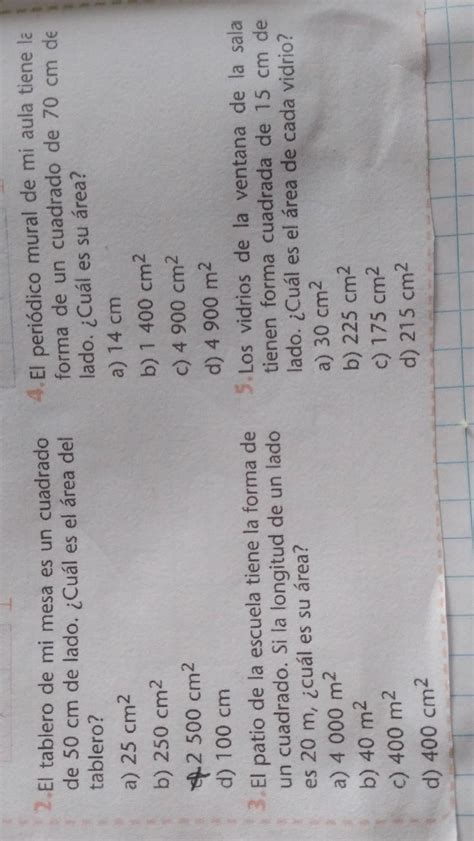 2. El tablero de mi mesa es un cuadrado
de 50 cm de lado. ¿Cuál es el área del
tablero?
a) 25 cm²
b) 250 cm²
c) 2 500 cm²
d) 100 cm
3. El patio de la escuela tiene la forma de
un cuadrado. Si la longitud de un lado
es 20 m, ¿cuál es su área?
a) 4 000 m²
b) 40 m²
c) 400 m²
d) 400 cm²
4. El periódico mural de mi aula tiene la
forma de un cuadrado de 70 cm de
lado. ¿Cuál es su área?
a) 14 cm
b) 1 400 cm²
c) 4 900 cm²
d) 4 900 m²
5. Los vidrios de la ventana de la sala
tienen forma cuadrada de 15 cm de
lado. ¿Cuál es el área de cada vidrio?
a) 30 cm²
b) 225 cm²
c) 175 cm²
d) 215 cm²